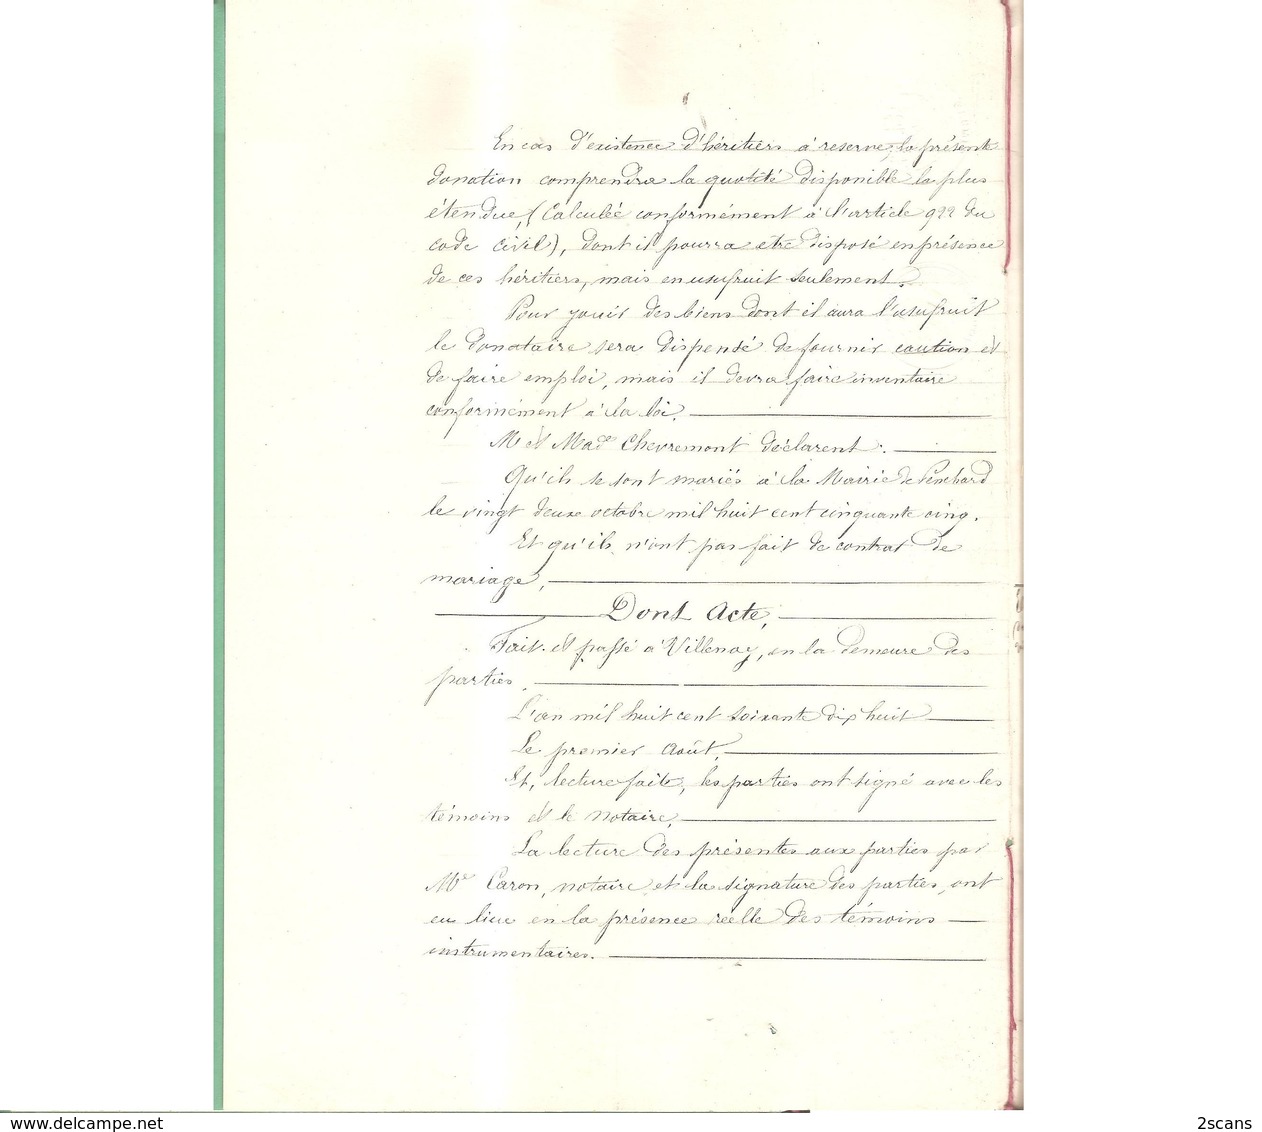 En cas d'existence d'héritiers à réserve, la présente
donation comprendra la quotité disponible la plus
étendue, (Calculée conformément à l'article 922 du
code civil), dont il pourra etre disposé en présence
de ces héritiers, mais en usufruit seulement.
Pour jouir des biens dont il aura l'usufruit
le donataire sera dispensé de fournir caution et
de faire emploi, mais il devra faire inventaire
conformément à la loi.
M et Made Chevremont déclarent :
Qu'ils se sont mariés à la Mairie de Penchard
le vingt deux octobre mil huit cent cinquante cinq.
Et qu'ils n'ont pas fait de contrat de
mariage,
Dont Acte,
Fait et passé à Villenoy, en la demeure des
parties
L'an mil huit cent soixante dix huit
Le premier Août,
Et, lecture faite, les parties ont signé avec les
témoins et le Notaire,
La lecture des présentes aux parties par
Me Caron, notaire et la signature des parties, ont
eu lieu en la présence réelle des témoins
instrumentaires.
www.delcampe.net
2scans